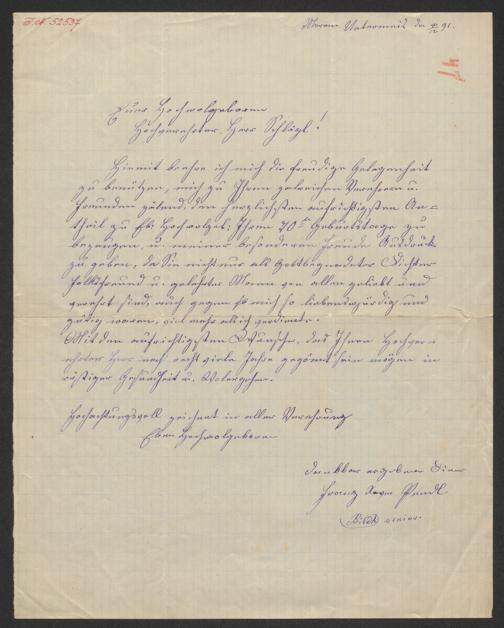 I.N. 52537
Meran Untermais den 9/2 91.
47
Euer Hochwolgeboren
Hochgeehrter Herr Schlögl!
Hiermit beehre ich mich die freudige Gelegenheit
zu benützen, mich zu Ihren zahlreichen Verehrern u.
Freunden zählend, den herzlichsten aufrichtigsten An=
theil zu Eh. Hochwolgeb: Ihrem 70ten Geburtstage zu
bezeugen, u. meiner besonderen Freude Ausdruck
zu geben, da Sie nicht nur als Gottbegnadeter Dichter
Volksfreund u. gelehrter Mann von allen geliebt und
geehrt sind, auch gegen mich so liebenswürdig und
gütig waren, viel mehr als ich verdiente.
Mit den aufrichtigsten Wünsche, das Ihnen Hochge=
ehrter Herr noch recht viele Jahre gegönnt sein mögen in
rüstiger Gesundheit u. Wolergehen.
Hochachtungsvoll zeichnet in aller Verehrung
Euer Hochwolgeboren
dankbar ergebener Diener
Franz Xaver Pendl
Bildh senior.